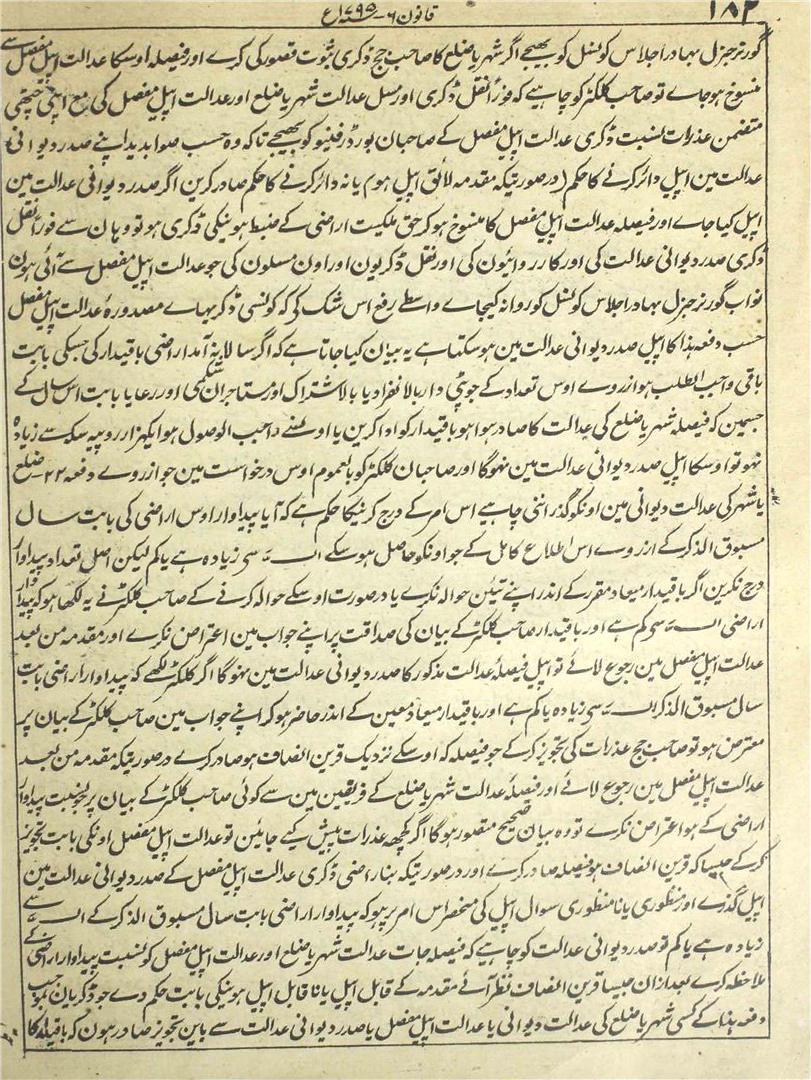 ۱۸۲
قانون ۶ - ۱۷۹۵ع
گورنر جنرل بہادر اجلاس کونسل کو بھیجے اگر شہر یا ضلع کا صاحب جج ڈکری ثبوت قصور کی کرے اور فیصلہ اوسکا عدالت اپیل مفصل سے
منسوخ ہو جاے تو صاحب کلکٹر کو چاہیے کہ فوراً نقل ڈکری اور مسل عدالت شہر یا ضلع اور عدالت اپیل مفصل کی مع اپنی چٹھی
متضمن عذرات بنسبت ڈکری عدالت اپیل مفصل کے صاحبان بورڈ رفینیو کو بھیجے تاکہ وہ حسب صوابدید اپنے صدر دیوانی
عدالت مین اپیل دائر کرنے کا حکم (درصورتیکہ مقدمہ لائق اپیل ہو) یا نہ دائر کرنے کا حکم صادر کرین اگر صدر دیوانی عدالت مین
اپیل کیا جاے اور فیصلہ عدالت اپیل مفصل کا منسوخ ہو کر حق ملکیت اراضی کے ضبط ہونیکی ڈکری ہو تو وہان سے فوراً نقل
ڈکری صدر دیوانی عدالت کی اور کارروائیون کی اور نقل ڈکریون اور اون مسلون کی جو عدالت اپیل مفصل سے آئی ہون
نواب گورنر جنرل بہادر اجلاس کونسل کو روانہ کیجاے واسطے رفع اس شک کی کہ کونسی ڈکریہاے مصدورہ عدالت اپیل مفصل
حسب دفعہ ہذا کا اپیل صدر دیوانی عدالت مین ہو سکتا ہے یہ بیان کیا جاتا ہے کہ اگر سالانہ آمد اراضی باقیدار کی جسکی بابت
باقی واجب الطلب ہو ازروے اوس تعداد کے جو پٹی دار بالانفراد یا بالاشتراک اور مستاجران شکمی اور رعایا بابت اس سال کے
جسمین کہ فیصلہ شہر یا ضلع کی عدالت کا صادر ہوا ہو باقیدار کو ادا کرین یا اونسے واجب الوصول ہو ایکہزار روپیہ سکہ سے زیادہ
نہو تو اوسکا اپیل صدر دیوانی عدالت مین نہوگا اور صاحبان کلکٹر کو بالعموم اوس درخواست مین جو ازروے دفعہ ۲۲ - ضلع
یا شہر کی عدالت دیوانی مین اونکو گذراننی چاہیے اس امر کے درج کرنیکا حکم ہے کہ آیا پیداوار اوس اراضی کی بابت سال
مسبوق الذکر کے ازروے اس اطلاع کامل کے جو اونکو حاصل ہو سکے سے زیادہ ہے یا کم لیکن اصل تعداد پیداوار
درج نکرین اگر باقیدار میعاد مقرر کے اندر اپنے تئین حوالہ نکرے یا درصورت اوسکے حوالہ کرنے کے صاحب کلکٹر نے یہ لکھا ہو کہ پیداوار
اراضی سے کم ہے اور باقیدار صاحب کلکٹر کے بیان کی صداقت پر اپنے جواب مین اعتراض نکرے اور مقدمہ من بعد
عدالت اپیل مفصل مین رجوع لائے تو اپیل فیصلہ عدالت مذکور کا صدر دیوانی عدالت مین نہوگا اگر کلکٹر لکھے کہ پیداوار اراضی بابت
سال مسبوق الذکر سے زیادہ یا کم ہے اور باقیدار میعاد معین کے اندر حاضر ہو کر اپنے جواب مین صاحب کلکٹر کے بیان پر
معترض ہو تو صاحب جج عذرات کی تجویز کر کے جو فیصلہ کہ اوسکے نزدیک قرین انصاف ہو صادر کرے درصورتیکہ مقدمہ من بعد
عدالت اپیل مفصل مین رجوع لائے اور فیصلہ عدالت شہر یا ضلع کے فریقین مین سے کوئی صاحب کلکٹر کے بیان پر جو بنسبت پیداوار
اراضی کے ہو اعتراض نکرے تو وہ بیان صحیح متصور ہوگا اگر کچھ عذرات پیش کیے جائین تو عدالت اپیل مفصل اونکی بابت تجویز
کر کے جیسا کہ قرین انصاف ہو فیصلہ صادر کرے اور درصورتیکہ بناراضی ڈکری عدالت اپیل مفصل کے صدر دیوانی عدالت مین
اپیل گذرے اور منظوری یا نامنظوری سوال اپیل کی منحصر اس امر پر ہو کہ پیداوار اراضی بابت سال مسبوق الذکر کے سے
زیادہ ہے یا کم تو صدر دیوانی عدالت کو چاہیے کہ فیصلہ جات عدالت شہر یا ضلع اور عدالت اپیل مفصل کو بنسبت پیداوار اراضی کے
ملاحظہ کرے بعد ازان جیسا قرین انصاف نظر آئے مقدمہ کے قابل اپیل یا ناقابل اپیل ہونیکی بابت حکم دے جو ڈکریان بموجب
دفعہ ہذا کے کسی شہر یا ضلع کی عدالت دیوانی یا عدالت اپیل مفصل یا صدر دیوانی عدالت سے باین تجویز صادر ہون کہ باقیدار کا